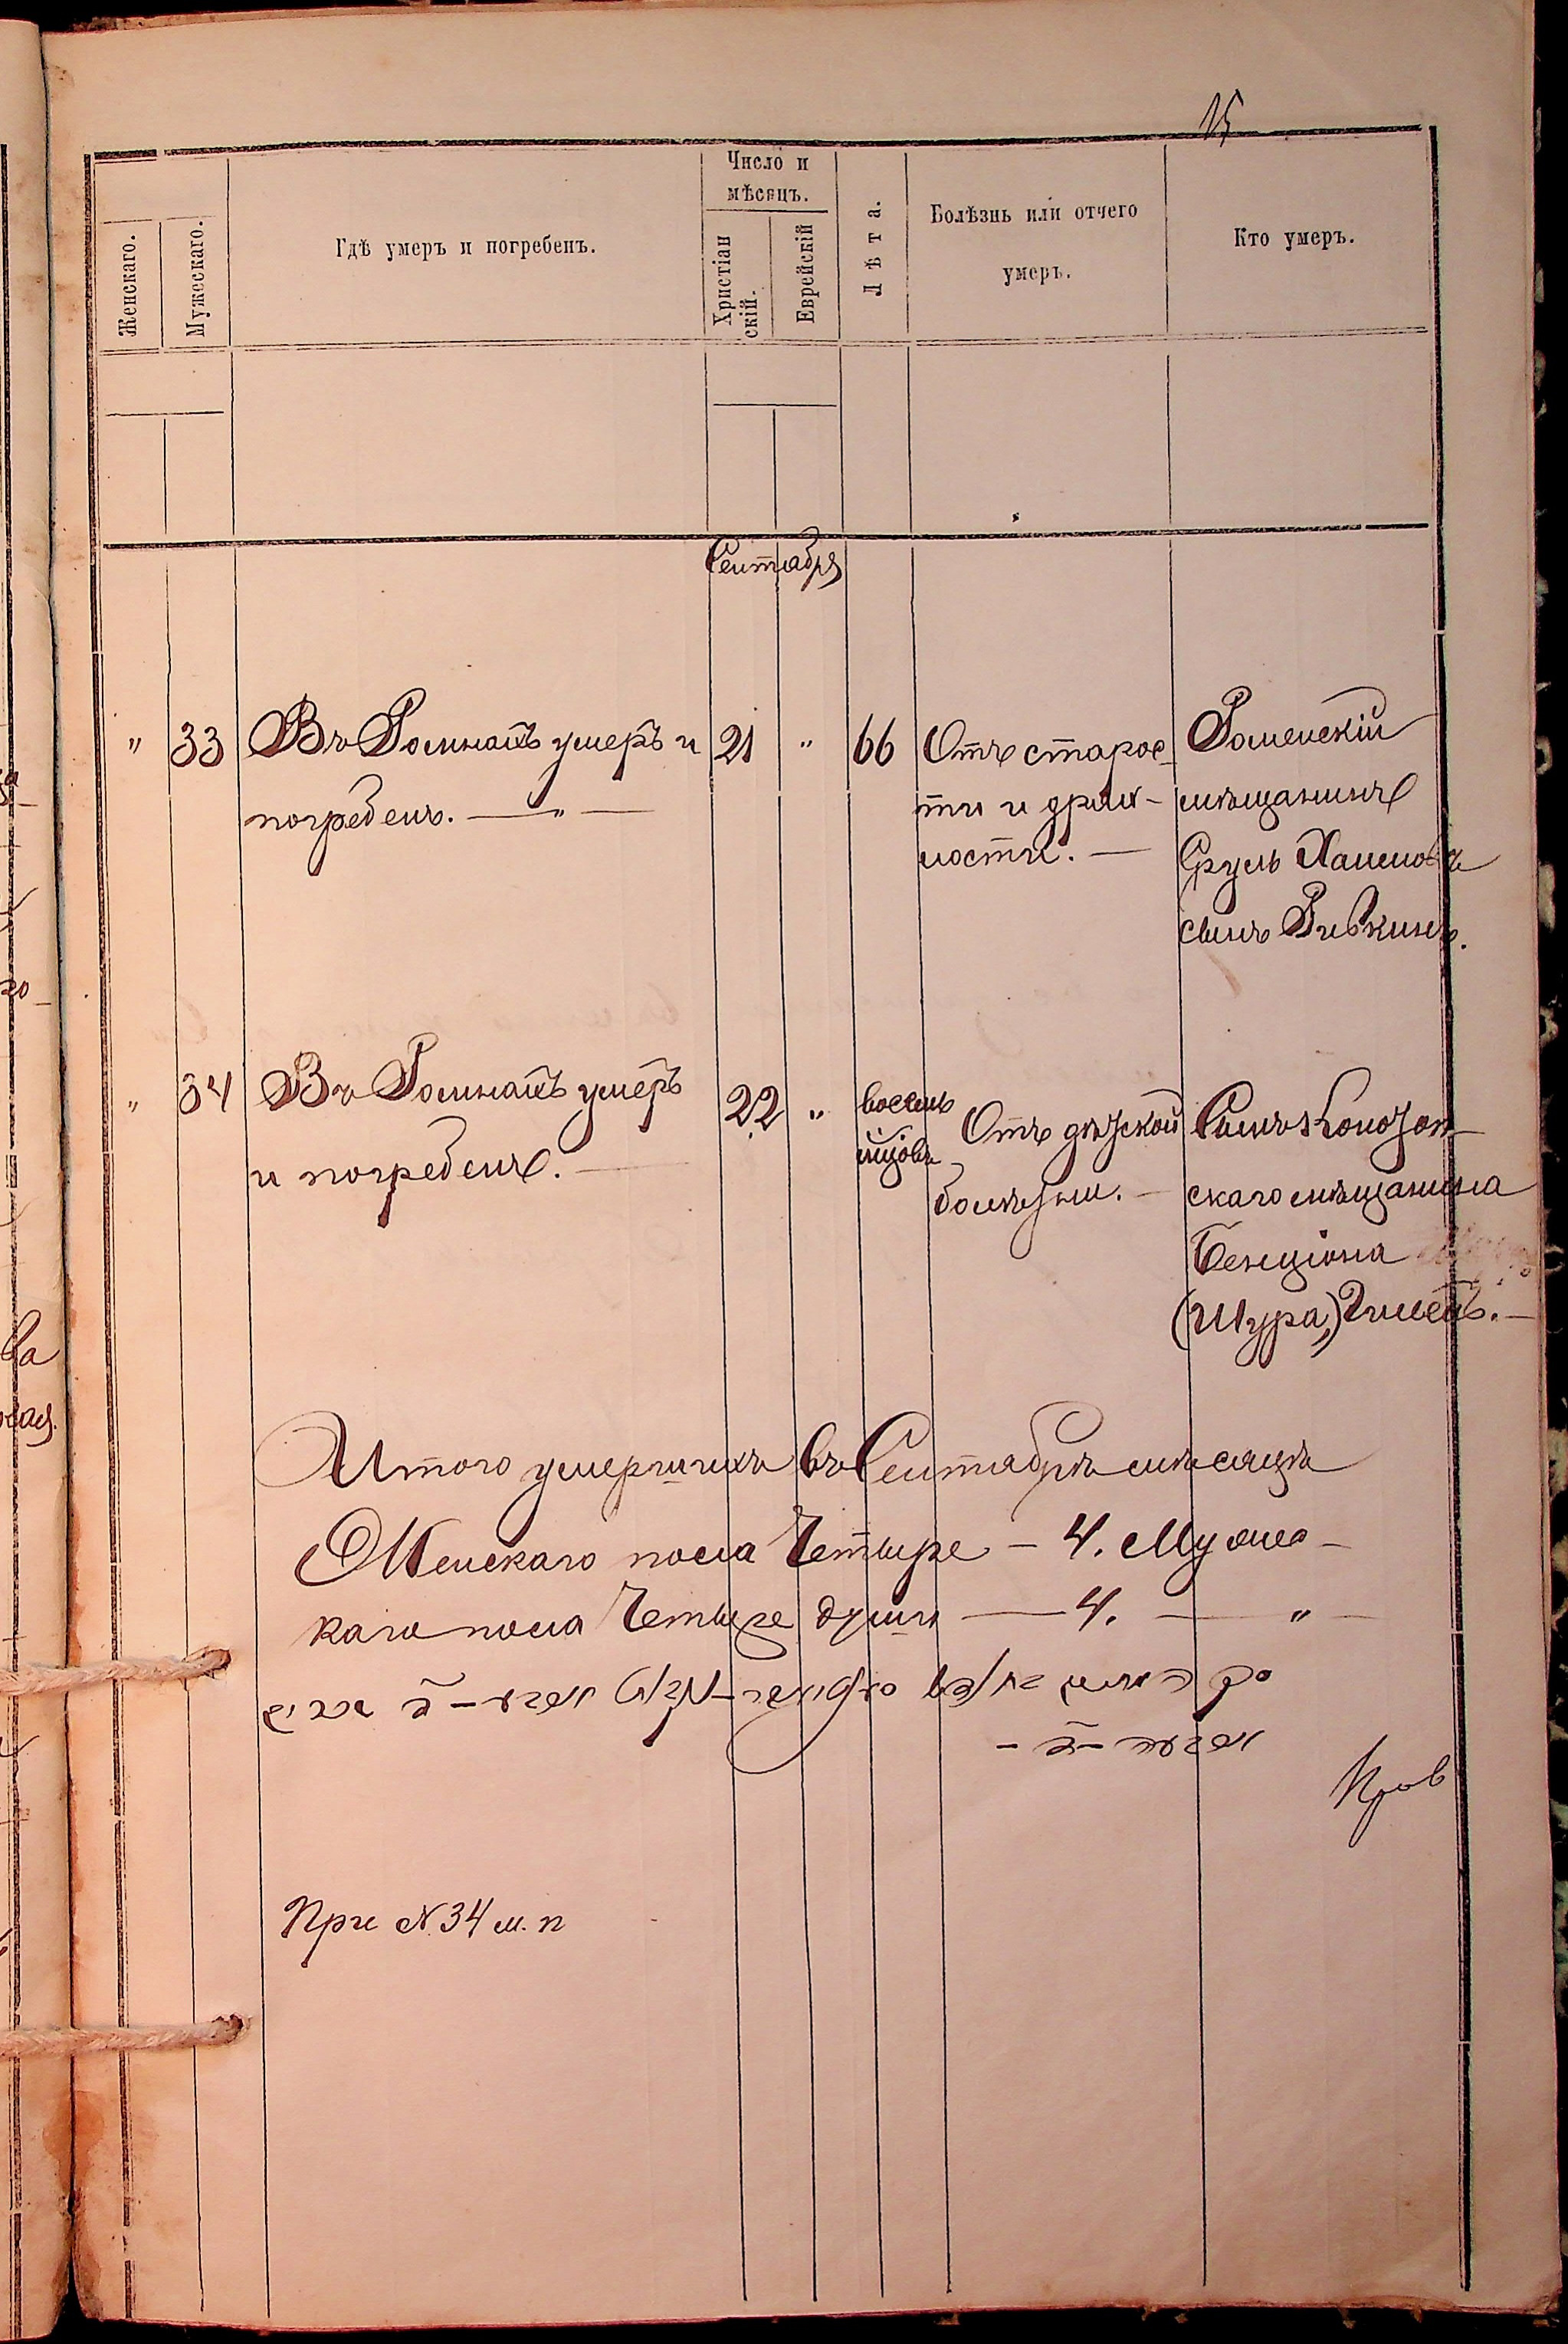 15
Число и
мѣсяцъ.
Женскаго.
Мужескаго.
Гдѣ умеръ и погребенъ.
Христіан
скій.
Еврейскій
Лѣта.
Болѣзнь или отчего
умеръ.
Кто умеръ.
Сентября
" 33 Въ Ромнахъ умеръ и 21 " 66 Отъ старос- Роменскій
погребенъ. — " — ти и дрях- мѣщанинъ
лости. — Сруль Хаимовъ
сынъ Ривкинъ.
" 34 Въ Ромнахъ умеръ 22 " восемь Отъ дѣтской Сынъ Конотоп-
и погребенъ. — мцовъ болѣзни. — скаго мѣщанина
Бенціона
(Шура,)
Итого умершихъ въ Сентябрѣ мѣсяцѣ
Женскаго пола Четыре — 4. Мужес-
каго пола Четыре души — 4. — " —
При № 34 м. п
Пров